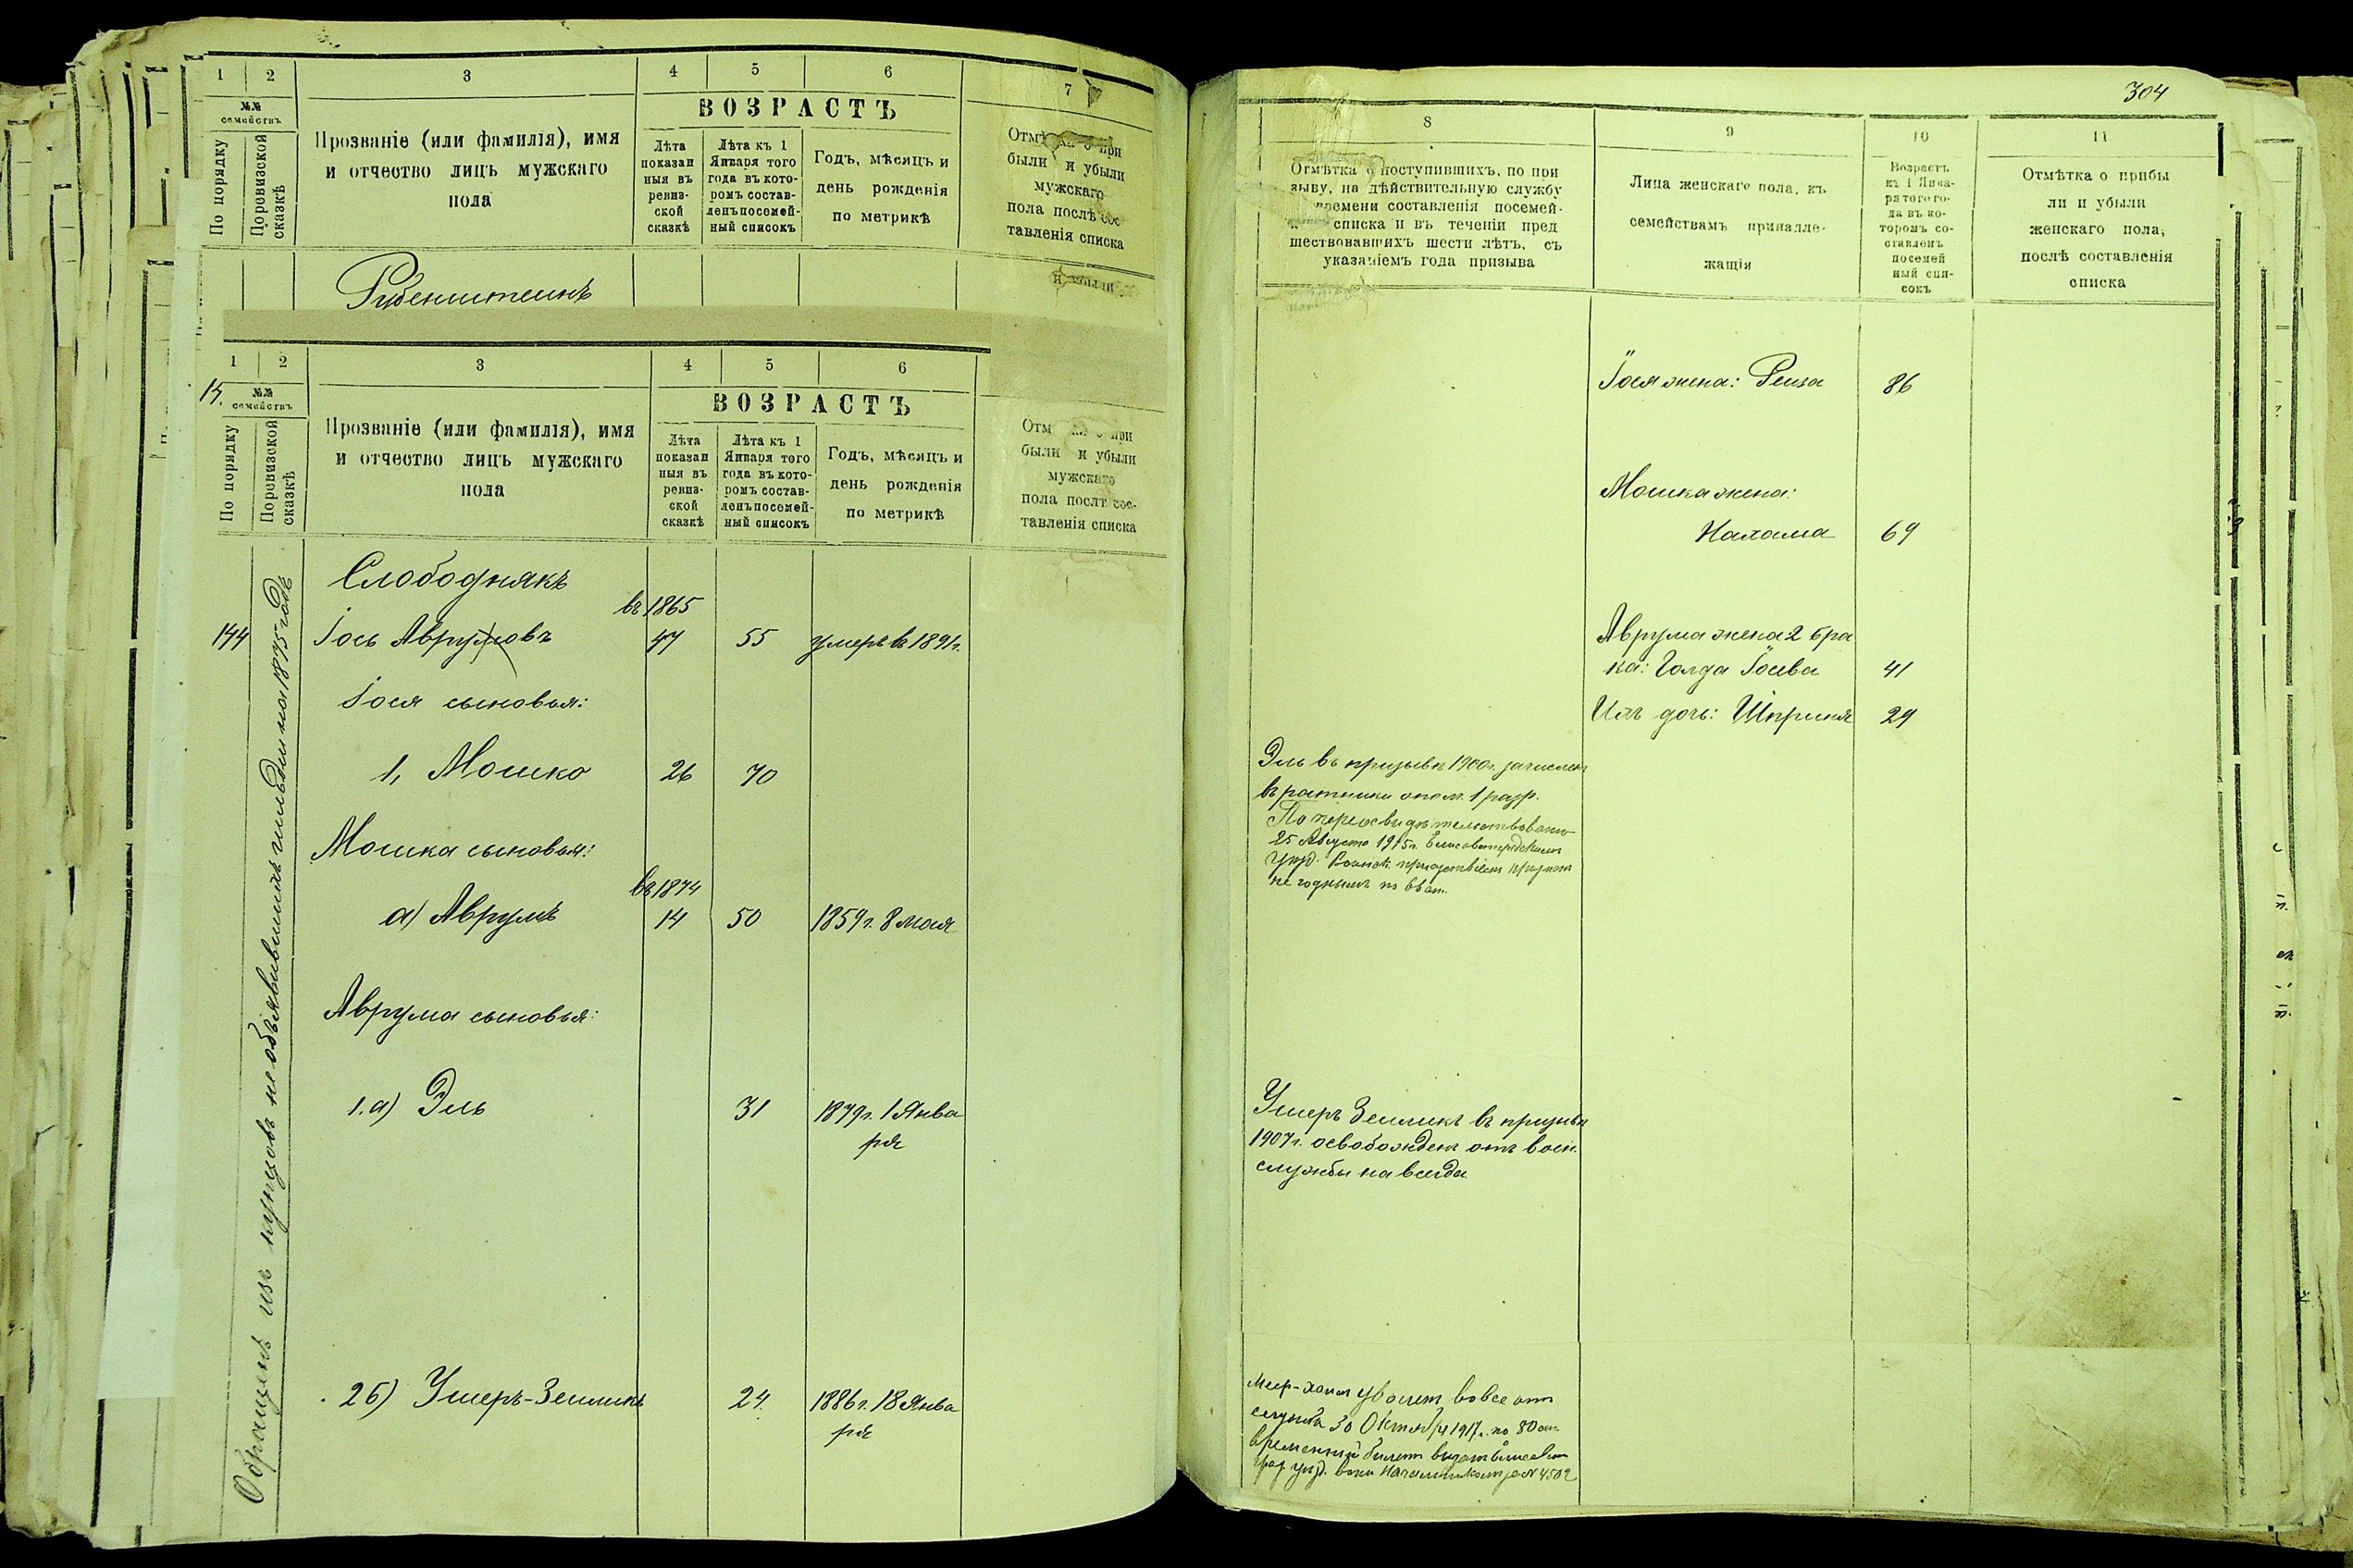 1 2 3 4 5 6 7
№№ семействъ
По порядку
По ревизской сказкѣ
Прозваніе (или фамилія), имя
и отчество лицъ мужскаго
пола
ВОЗРАСТЪ
Лѣта
показан
ныя въ
ревиз-
ской
сказкѣ
Лѣта къ 1
Января того
года въ кото-
ромъ состав-
ленъ посемей-
ный списокъ
Годъ, мѣсяцъ и
день рожденія
по метрикѣ
были и убыли
мужскаго
пола послѣ сос-
тавленія списка
Рубенштейнъ
1 2 3 4 5 6
15.
№№
семействъ
По порядку
По ревизской сказкѣ
Прозваніе (или фамилія), имя
и отчество лицъ мужскаго
пола
ВОЗРАСТЪ
Лѣта
показан
ныя въ
ревиз-
ской
сказкѣ
Лѣта къ 1
Января того
года въ кото-
ромъ состав-
ленъ посемей-
ный списокъ
Годъ, мѣсяцъ и
день рожденія
по метрикѣ
были и убыли
мужскаго
пола послѣ сос-
тавленія списка
Обращенъ изъ купцовъ необъявившихъ гильдіи на 1875 годъ
Слободнякъ
въ 1865
144 ІосьАврумовъ 47 55 умеръ въ 1891г.
Іося сыновья:
1, Мошко 26 70
Мошка сыновья:
въ 1874
а) Аврумъ 14 50 1859 г. 8 мая
Аврума сыновья:
1.а) Эль 31 1879 г. 1 Янва
ря
2б) Ушеръ-Зейликъ 24. 1886 г. 18 Янва
ря
304
8 9 10 11
Отмѣтка о поступившихъ, по при
зыву, на дѣйствительную службу
времени составленія посемей-
списка и въ теченіи пред
шествовавшихъ шести лѣтъ, съ
указаніемъ года призыва
Лица женскаго пола, къ
семействамъ принадле-
жащія
Возрастъ
къ 1 Янва-
ря того го-
да въ ко-
торомъ со-
ставленъ
посемей
ный спи-
сокъ
Отмѣтка о прибы
ли и убыли
женскаго пола,
послѣ составленія
списка
Іося жена: Рейза 86
Мошка жена:
Нахама 69
Аврума жена 2 бра
ка: Голда Іосева 41
Ихъ дочь: Шпринця 29
Эль въ призывъ 1900г. зачисленъ
въ ратники опол. 1 разр.
По переосвидѣтельствованію
25 Августа 1915г. Елисаветградскимъ
Уѣзд. Воинск. присутствіемъ признанъ
не годнымъ
Ушеръ Зейликъ въ призывъ
1907г. освобожденъ отъ воин.
службы навсегда
Меер-хаим уволен вовсе от
службы 30 Октября 1917г. по 80 ст.
временный билет выдан Елисавет
град. уезд. воин. начальником за № 4502